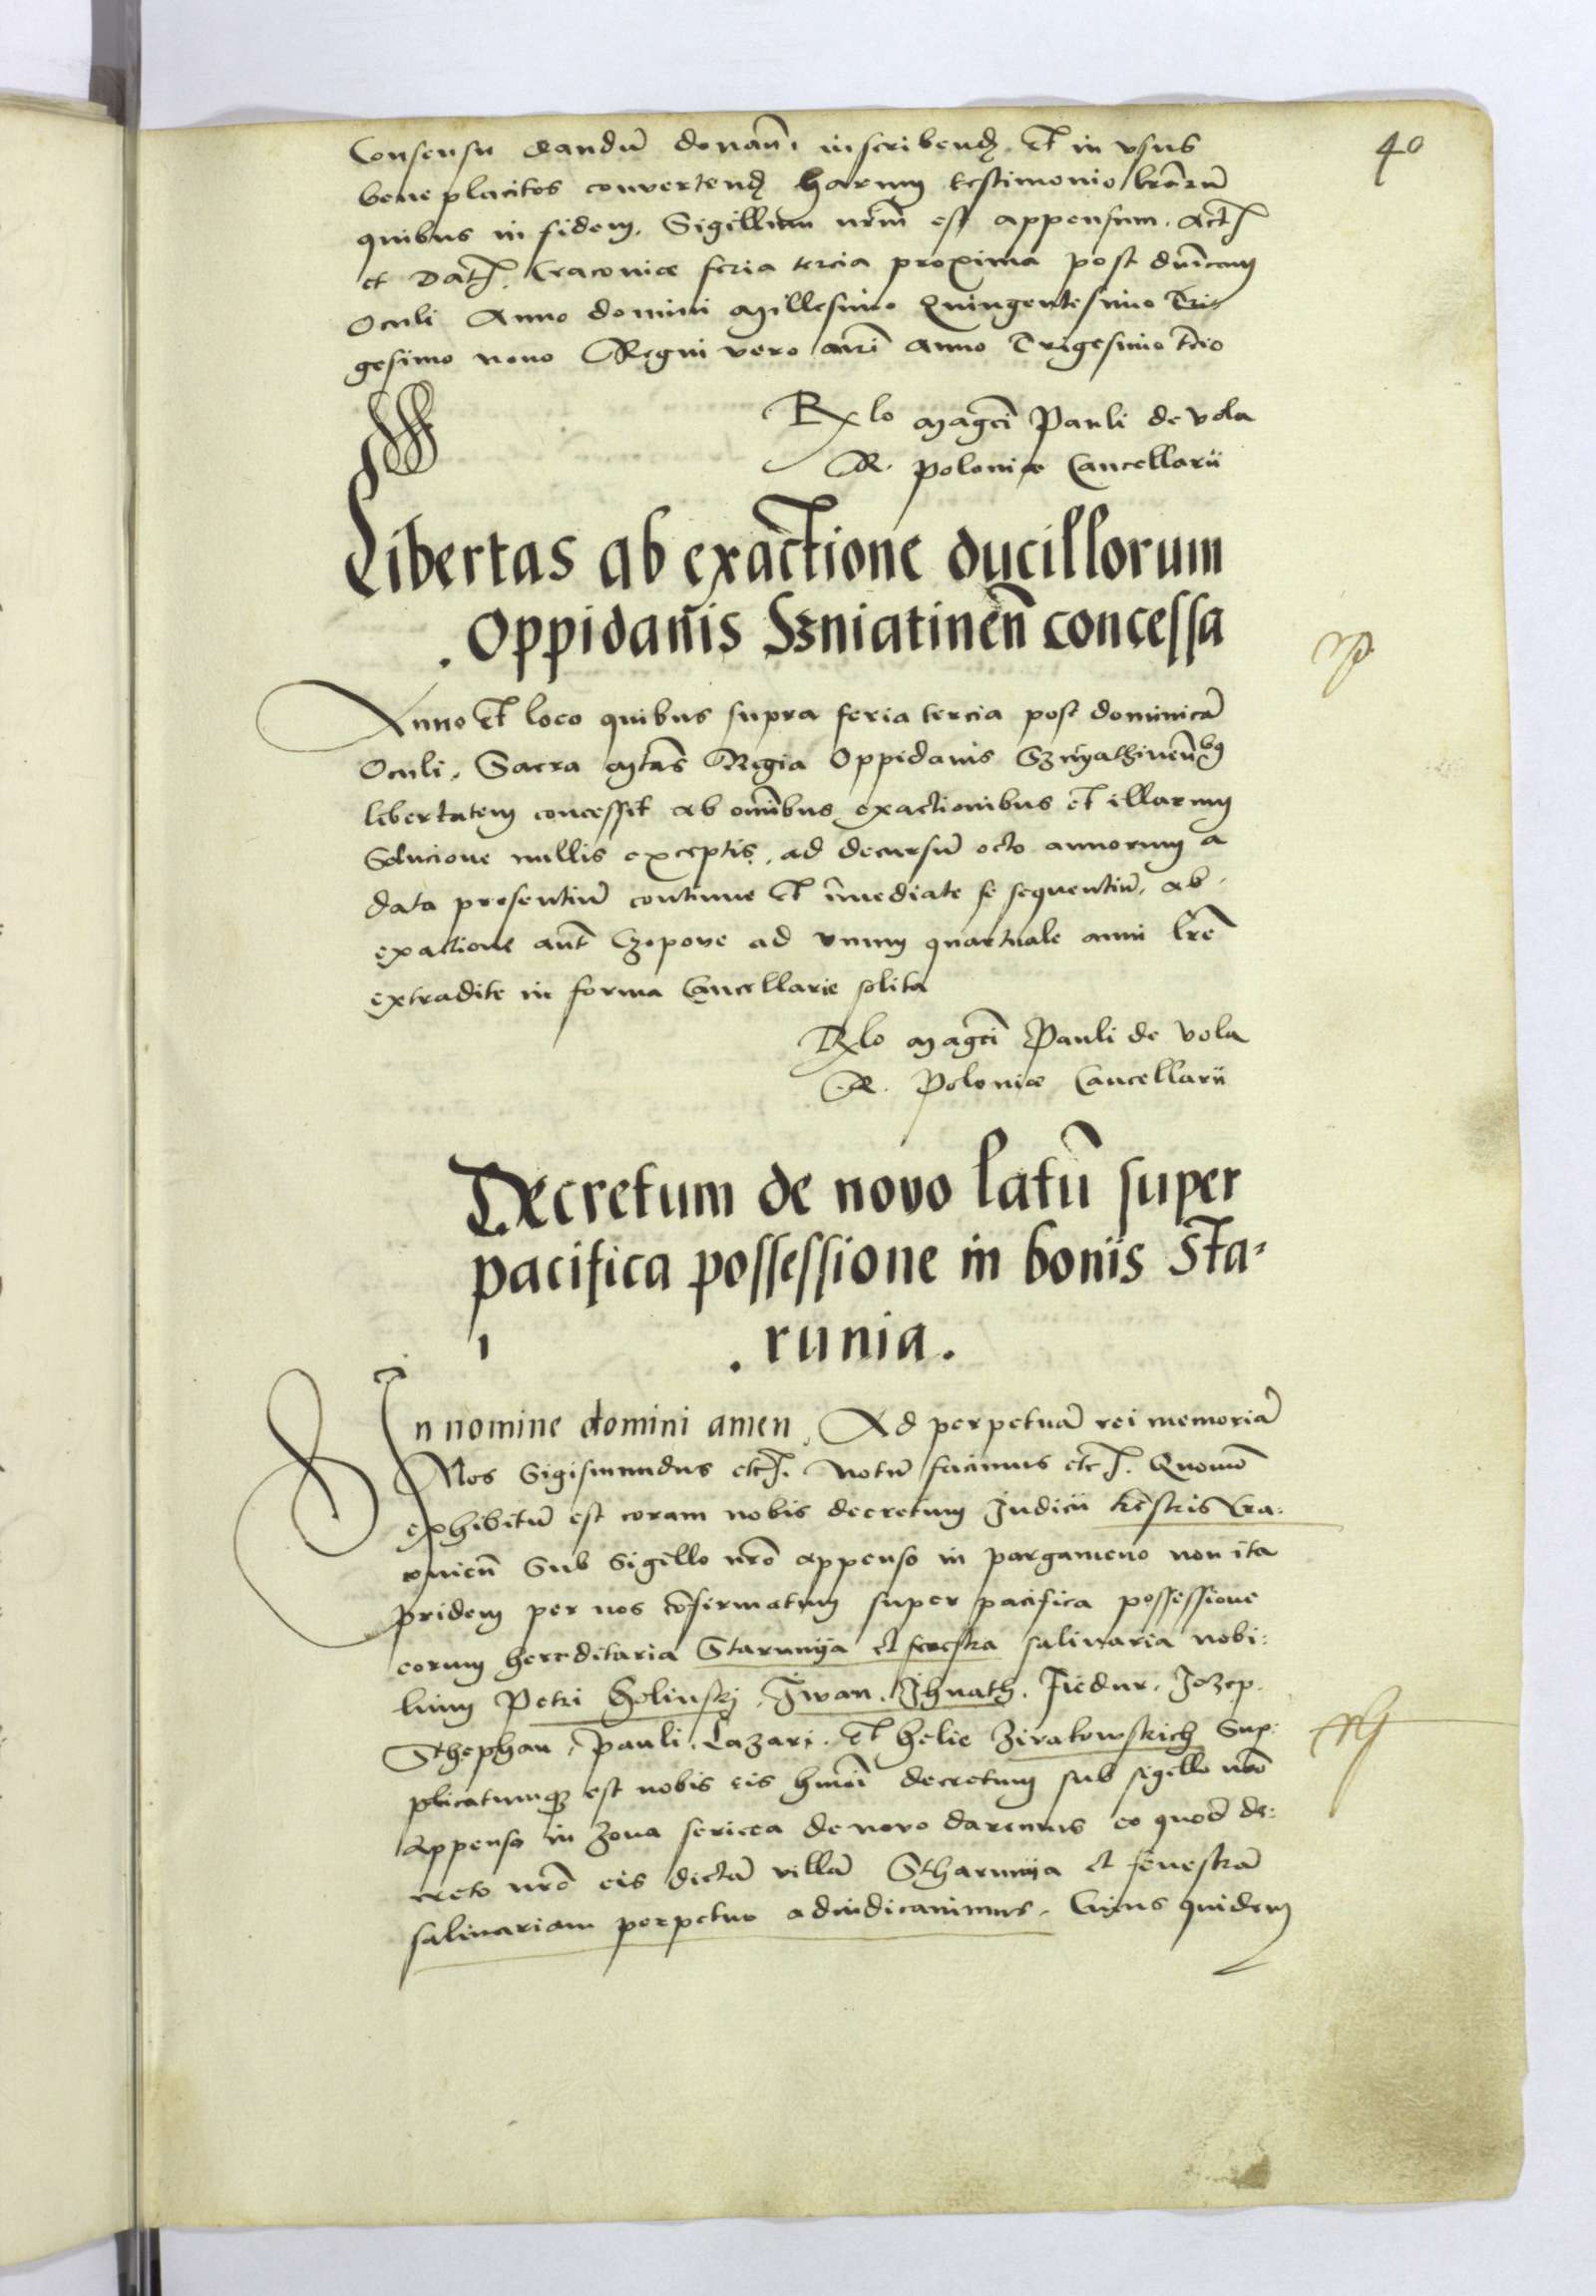 40
Consensu dandũ donañ. inscribend. Et in vsus
bene placitos convertend harum testimonio lrãrũ
quibus in fidem. Sigillum nrm̃ est appensum. Act
et Dat. Cracoviæ feria tercia proxima post dnĩcam
Oculi Anno domini Millesimo Quingentesimo Tri-
gesimo nono Regni vero nri anno Trigesimo tc̃io
Rlo Magci Pauli de vola
R. Poloniæ Cancellarii
Libertas ab exactione ducillorum
. Oppidanis Szniatineñ concessa
Anno Et loco quibus supra feria tercia post dominicã
Oculi. Sacra Mtas Regia Oppidanis Sznyathinenbus
libertatem concessit ab omĩbus exactionibus Et illarum
Solucione nullis exceptis, ad decursũ octo annorum a
data presentiũ continue Et ĩmediate se sequentiũ. ab
exactione aũt Czopove ad vnum quartuale anni lrẽ
extradite in forma Cancellarie solita
Rlo Magci Pauli de Vola
R. Poloniæ Cancellarii
Decretum de novo latũ super
pacifica possessione in bonis Sta-
. runia .
In nomine domini amen. Ad perpetuã rei memoriã
Nos Sigismundus etc. Notũ facimus etc. Quomõ
exhibitũ est coram nobis decretum Judicii trẽstris Cra:
covieñ Sub Sigillo nrõ appenso in pargameno non ita
pridem per nos cõfirmatum super pacifica possessione
eorum hereditaria Starunija et fenestra salinaria nobi:
lium Petri Holinskj, Iwan, Ihnath. Fiedur. Jozep.
Sthephan, Pauli. Lazari. Et helie Zirakowskich Sup:
plicatumque est nobis eis hmõi decretum sub sigillo nrõ
Appenso in zona sericea de novo daremus eo quod de:
creto nrõ eis dictã villã Stharunija et fenestrã
salinariam perpetuo adiudicavimus. Cuius quidem